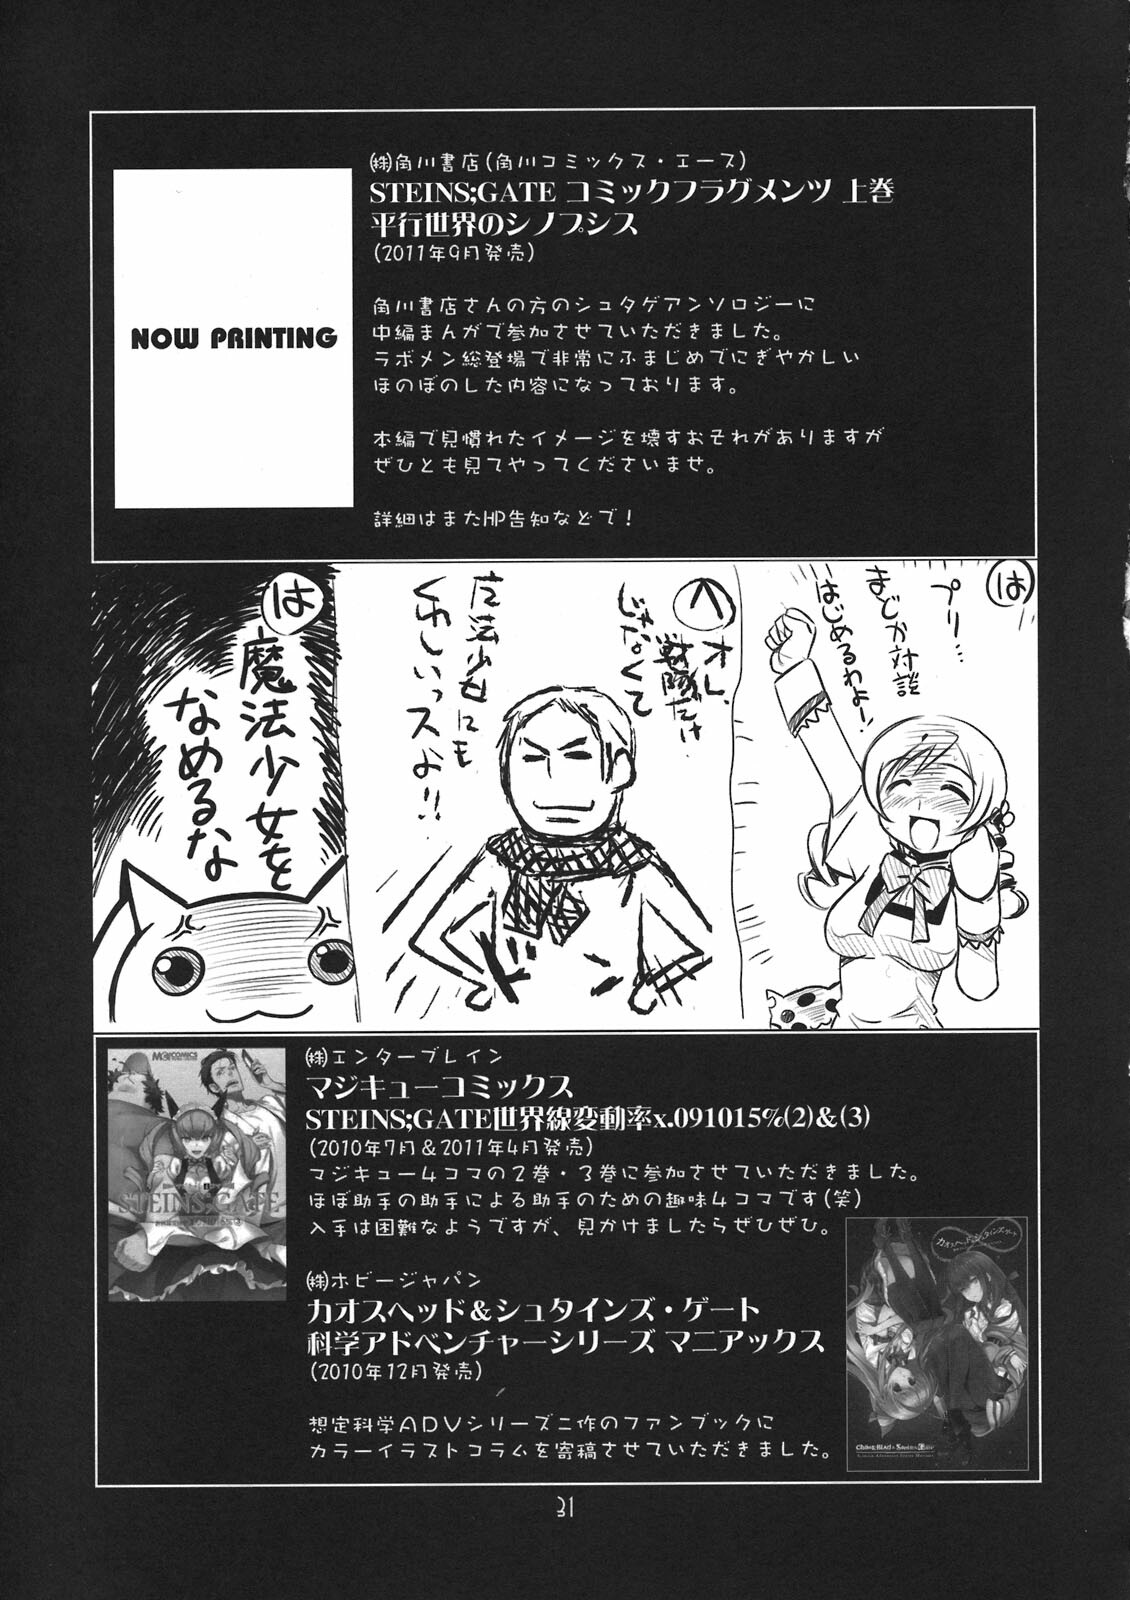 ㈱角川書店(角川コミックス・エース)
STEINS;GATE コミックフラグメンツ 上巻
平行世界のシノプシス
(2011年9月発売)
NOW PRINTING
角川書店さんの方のシュタゲアンソロジーに
中編まんがで参加させていただきました。
ラボメン総登場で非常にふまじめでにぎやかしい
ほのぼのした内容になっております。
本編で見慣れたイメージを壊すおそれがありますが
ぜひとも見てやってくださいませ。
詳細はまたHP告知などで！
は
プリ…
まどか対談
はじめるわよー！
へ
オレ、
戦隊だけ
じゃなくて
魔法少女にも
くわしいっスよ!!
ドン
は
魔法少女を
なめるな
MC COMICS
STEINS;GATE
㈱エンターブレイン
マジキューコミックス
STEINS;GATE世界線変動率x.091015%(2)&(3)
(2010年7月&2011年4月発売)
マジキュー4コマの2巻・3巻に参加させていただきました。
ほぼ助手の助手による助手のための趣味4コマです(笑)
入手は困難なようですが、見かけましたらぜひぜひ。
㈱ホビージャパン
カオスヘッド&シュタインズ・ゲート
科学アドベンチャーシリーズ マニアックス
(2010年12月発売)
想定科学ADVシリーズ二作のファンブックに
カラーイラストコラムを寄稿させていただきました。
カオスヘッド&シュタインズ・ゲート
Chaos;HEad & Steins;Gate
31